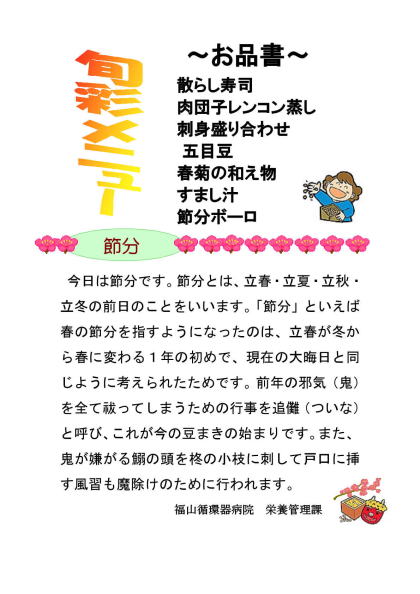 旬彩メニュー
～お品書～
散らし寿司
肉団子レンコン蒸し
刺身盛り合わせ
五目豆
春菊の和え物
すまし汁
節分ボーロ
節分
今日は節分です。節分とは、立春・立夏・立秋・
立冬の前日のことをいいます。「節分」といえば
春の節分を指すようになったのは、立春が冬か
ら春に変わる１年の初めで、現在の大晦日と同
じように考えられたためです。前年の邪気（鬼）
を全て祓ってしまうための行事を追儺（ついな）
と呼び、これが今の豆まきの始まりです。また、
鬼が嫌がる鰯の頭を柊の小枝に刺して戸口に挿
す風習も魔除けのために行われます。
福山循環器病院　栄養管理課